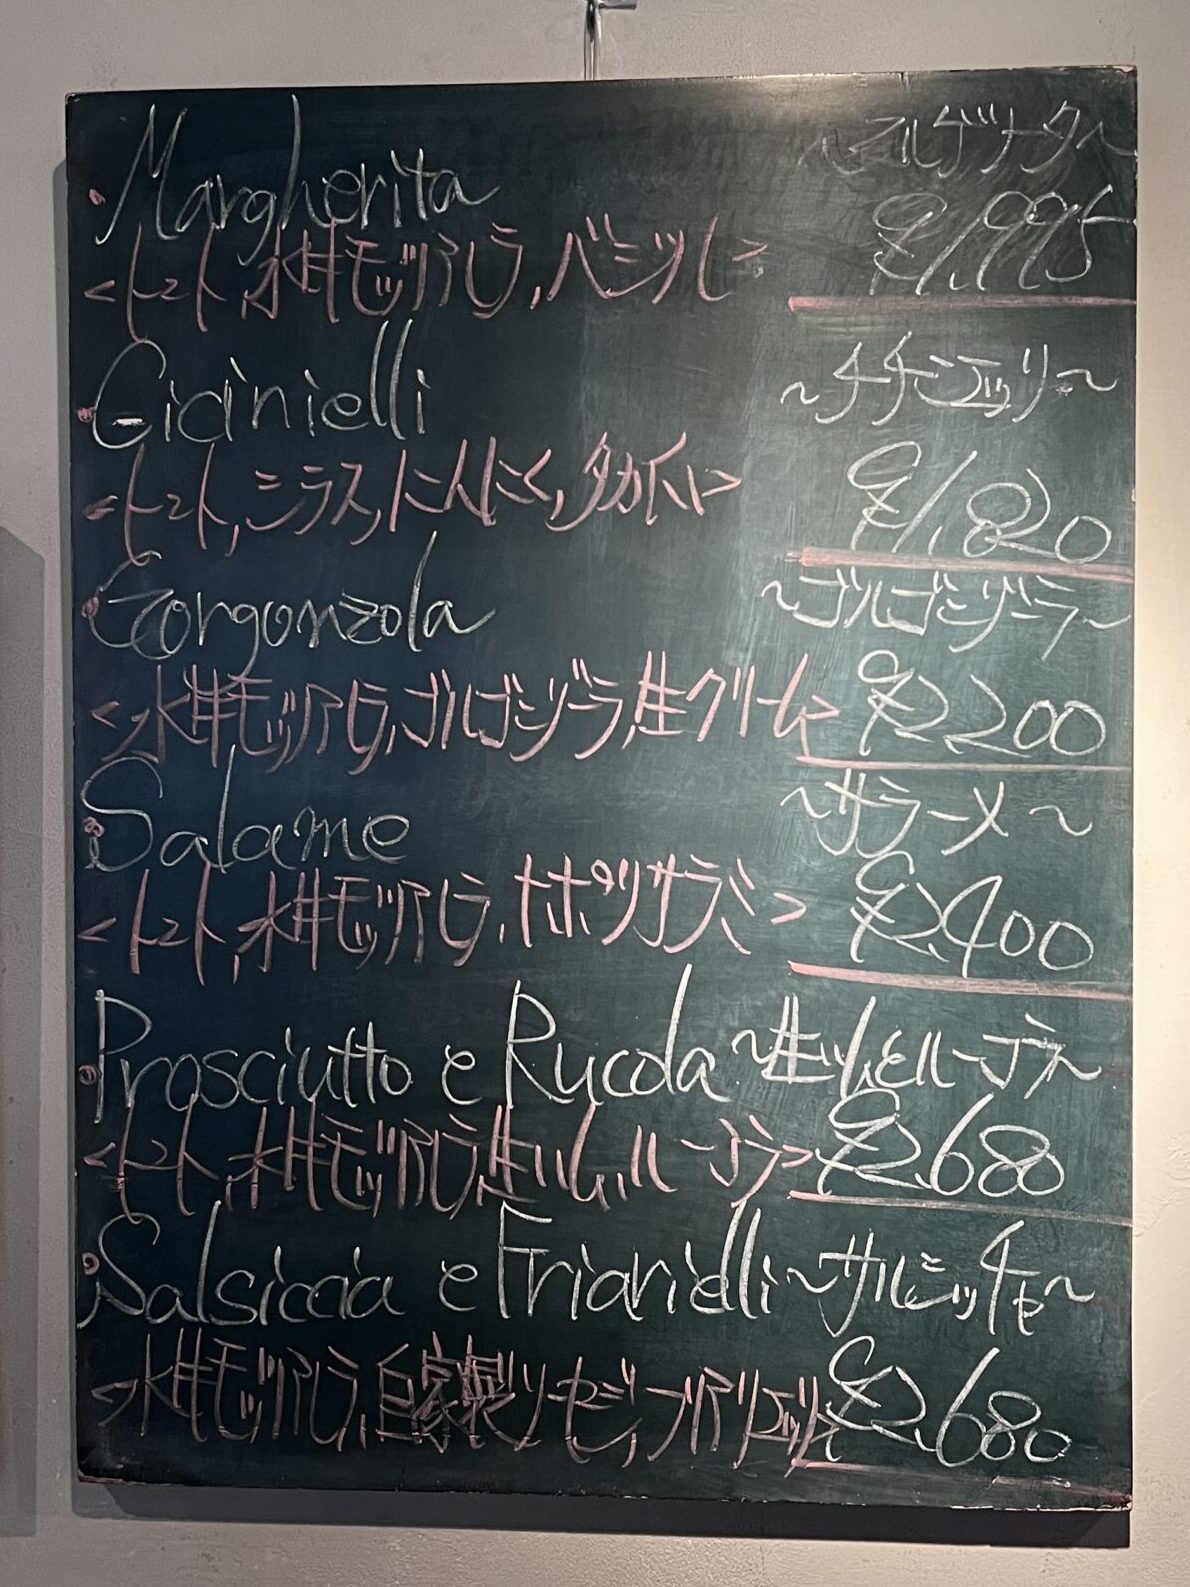 Margherita ~マルゲリータ~
<トマト,水牛モッツァレラ,バジル> ¥1,995
Cicinielli ~チチニエッリ~
<トマト,シラス,にんにく,タカノツメ> ¥1,820
Gorgonzola ~ゴルゴンゾーラ~
<水牛モッツァレラ,ゴルゴンゾーラ,生クリーム> ¥2,200
Salame ~サラーメ~
<トマト,水牛モッツァレラ,ナポリサラミ> ¥2,400
Prosciutto e Rucola ~生ハムとルーコラ~
<トマト,水牛モッツァレラ,生ハム,ルーコラ> ¥2,680
Salsiccia e Friarielli ~サルシッチャ~
<水牛モッツァレラ,自家製ソーセージ,フリアリエッリ> ¥2,680